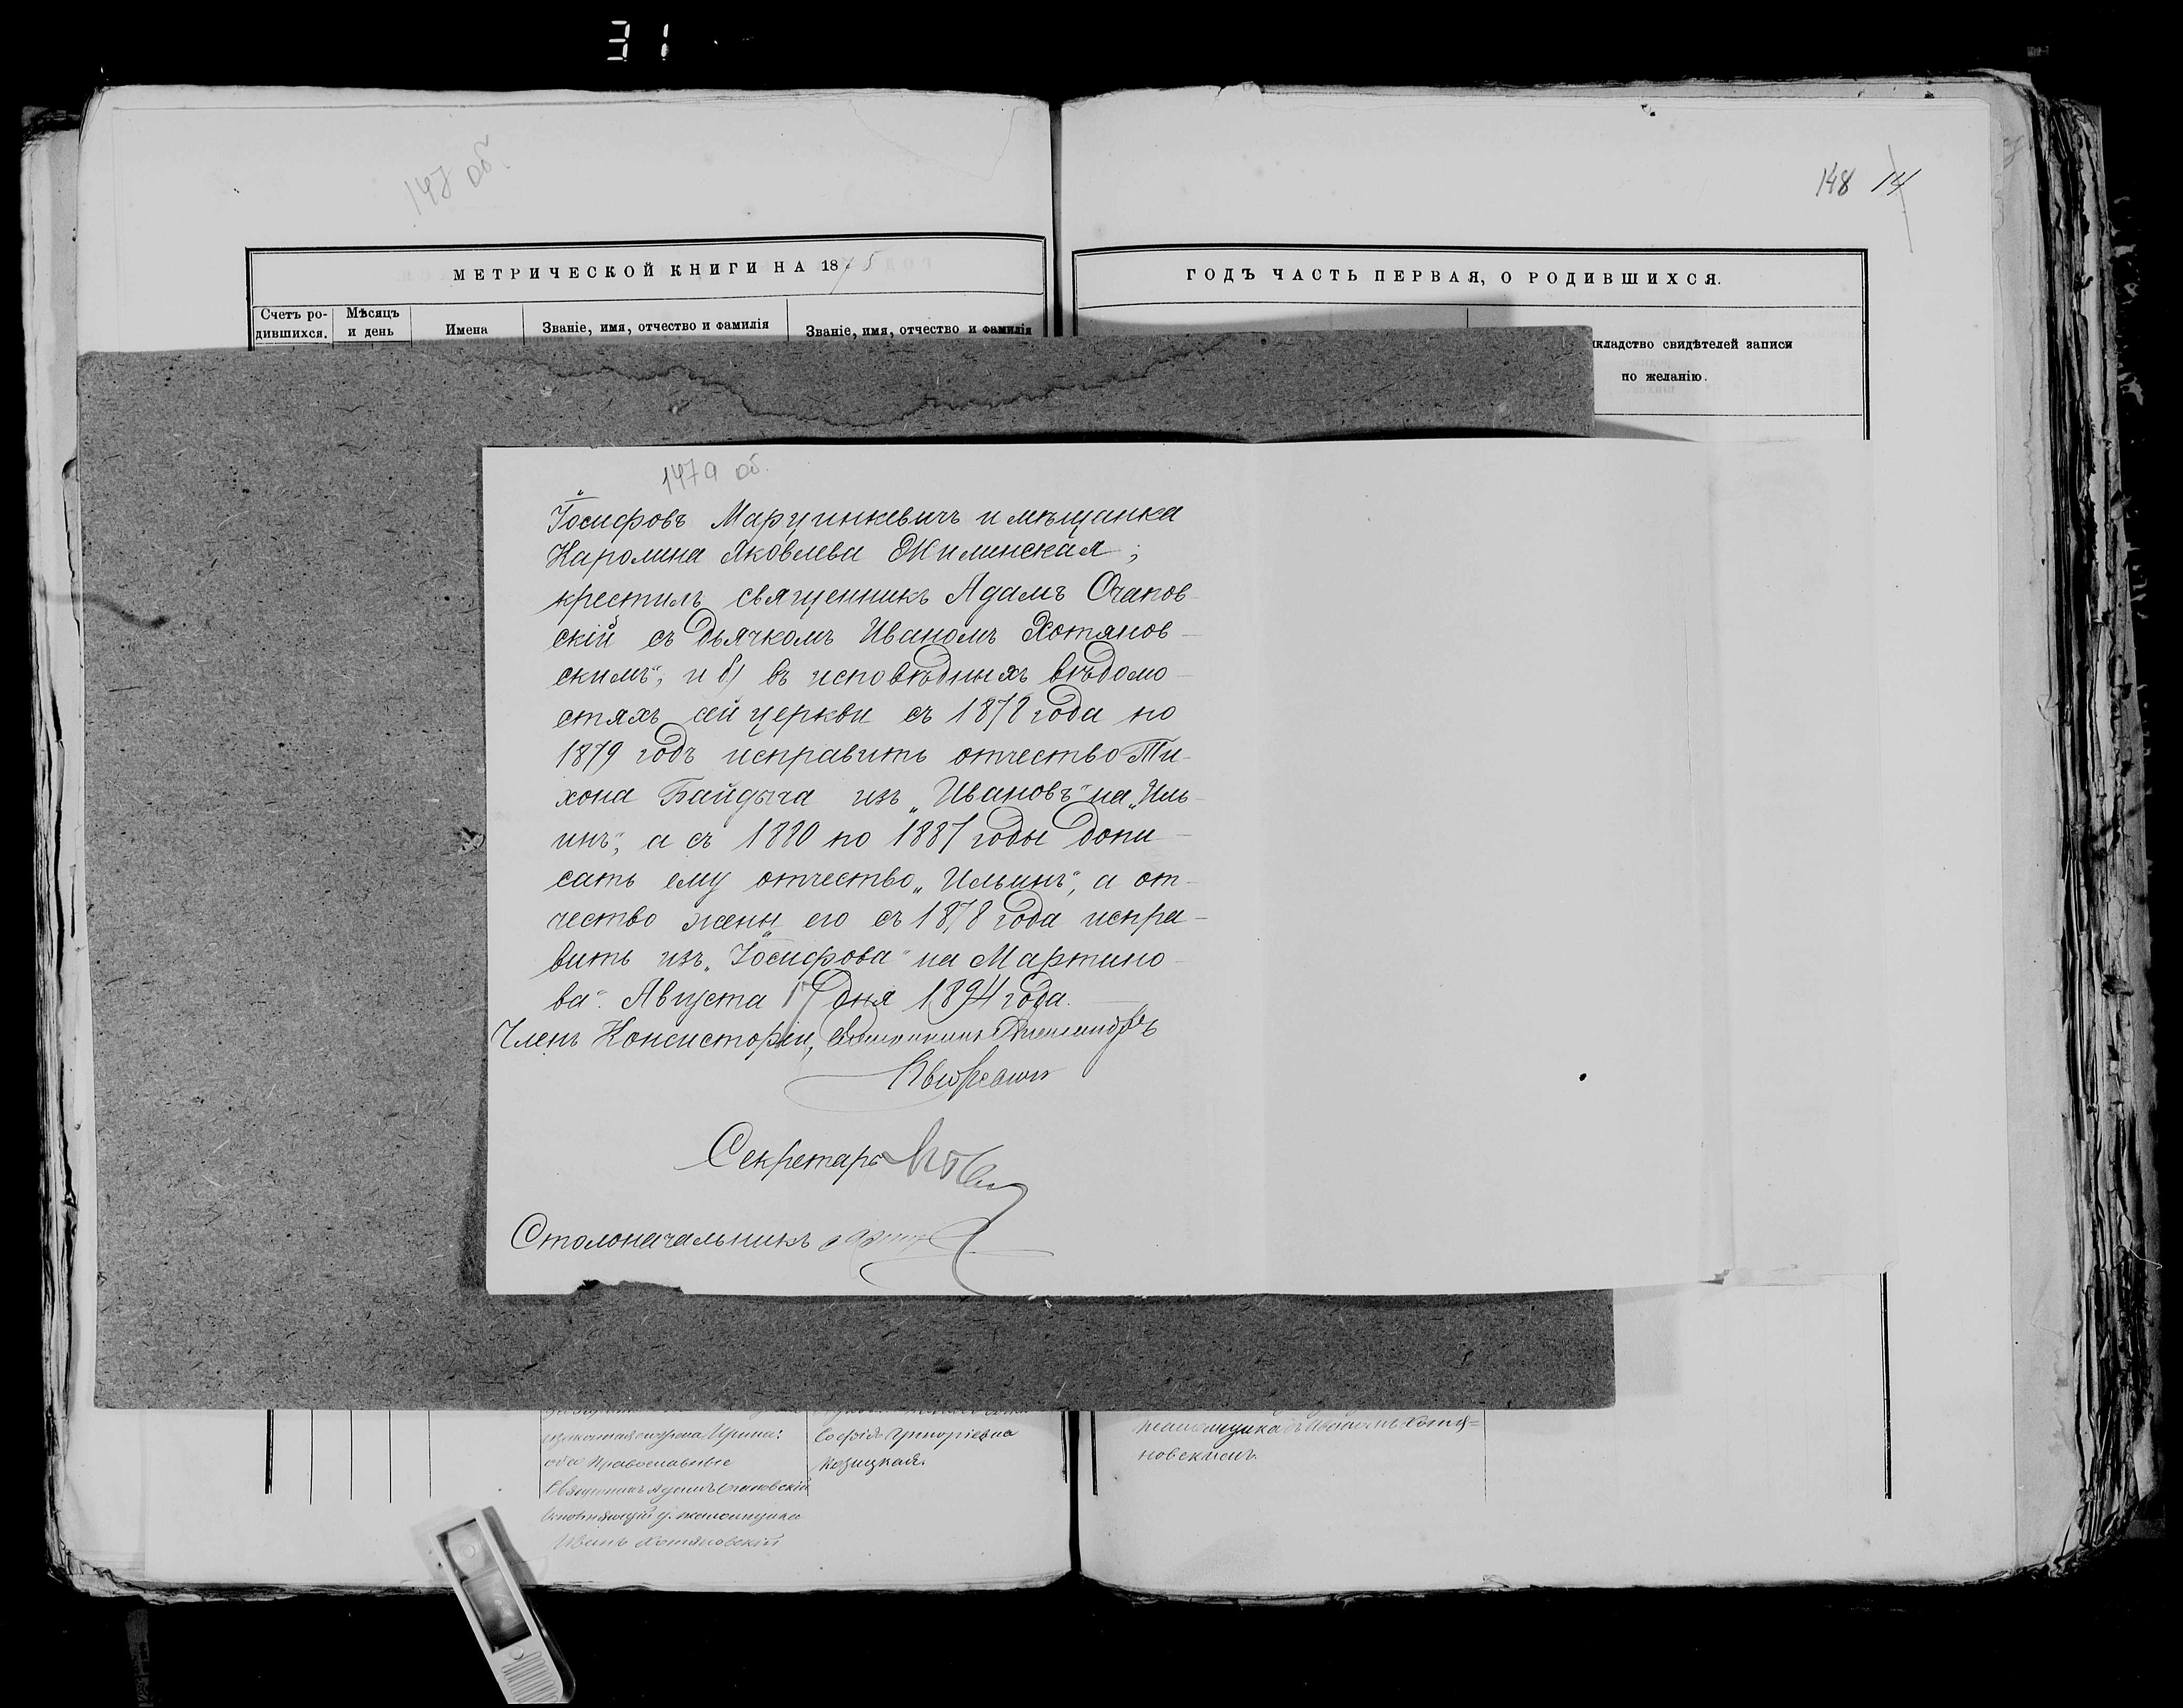 31
147 об.
148 14
МЕТРИЧЕСКОЙ КНИГИ НА 1875
ГОДЪ ЧАСТЬ ПЕРВАЯ, О РОДИВШИХСЯ.
Счетъ ро-
дившихся.
Мѣсяцъ
и день
Имена
Званіе, имя, отчество и фамилія
Званіе, имя, отчество и фамилія
кладство свидѣтелей записи
по желанію.
147а об.
Іосифовъ Марцинкевичъ и мѣщанка
Каролина Яковлева Жилинская;
крестилъ священникъ Адамъ Очапов-
скій съ дьячкомъ Иваномъ Хотянов-
скимъ"; и б) въ исповѣдныхъ вѣдомо-
стяхъ сей церкви съ 1878 года по
1879 годъ исправить отчество Ти-
хона Байдыча изъ „Ивановъ" на „Иль-
инъ", а съ 1880 по 1887 годы допи-
сать ему отчество „Ильинъ", а от-
чество жены его съ 1878 года испра-
вить изъ „Іосифова" на Мартино-
ва". Августа 17 дня 1894 года.
Членъ Консисторіи, Священникъ Александръ
Секретарь
Столоначальникъ
Ирина:
оба Православные
Священникъ Адамъ Очаповскій
Иванъ Хотяновскій
Софія Григоріевна
Козицкая.
Иваномъ Хотя=
новскимъ.